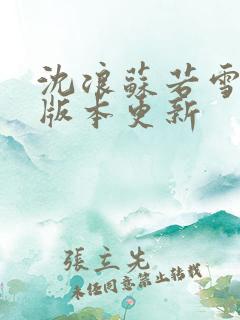 沈浪蘇若雪
版本更新
張立先
未經同意禁止轉載